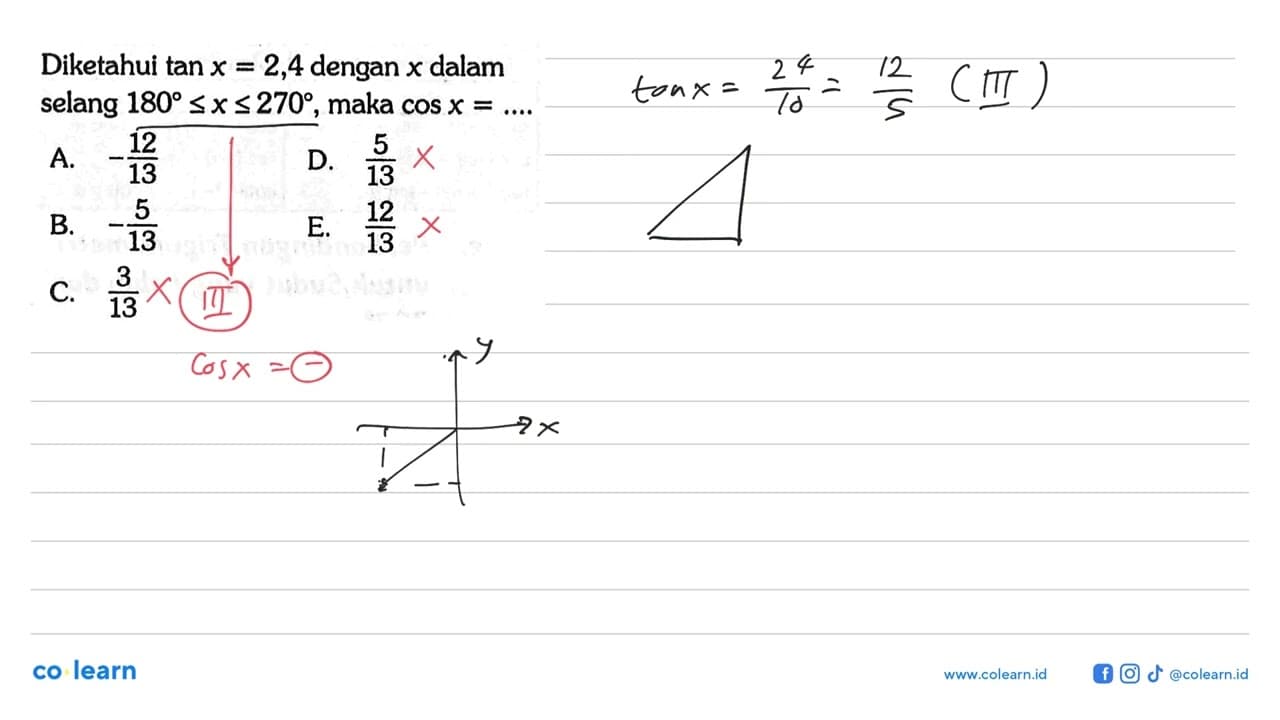 Diketahui tan x = 2,4 dengan x dalam
selang 180° ≤ x ≤ 270°, maka cos x = ....
A. -12/13
D. 5/13 X
B. -5/13
E. 12/13 X
C. 3/13 X III
cos x = -
tan x = 24/10 = 12/5 (III)
y
x
co learn
www.colearn.id
@colearn.id